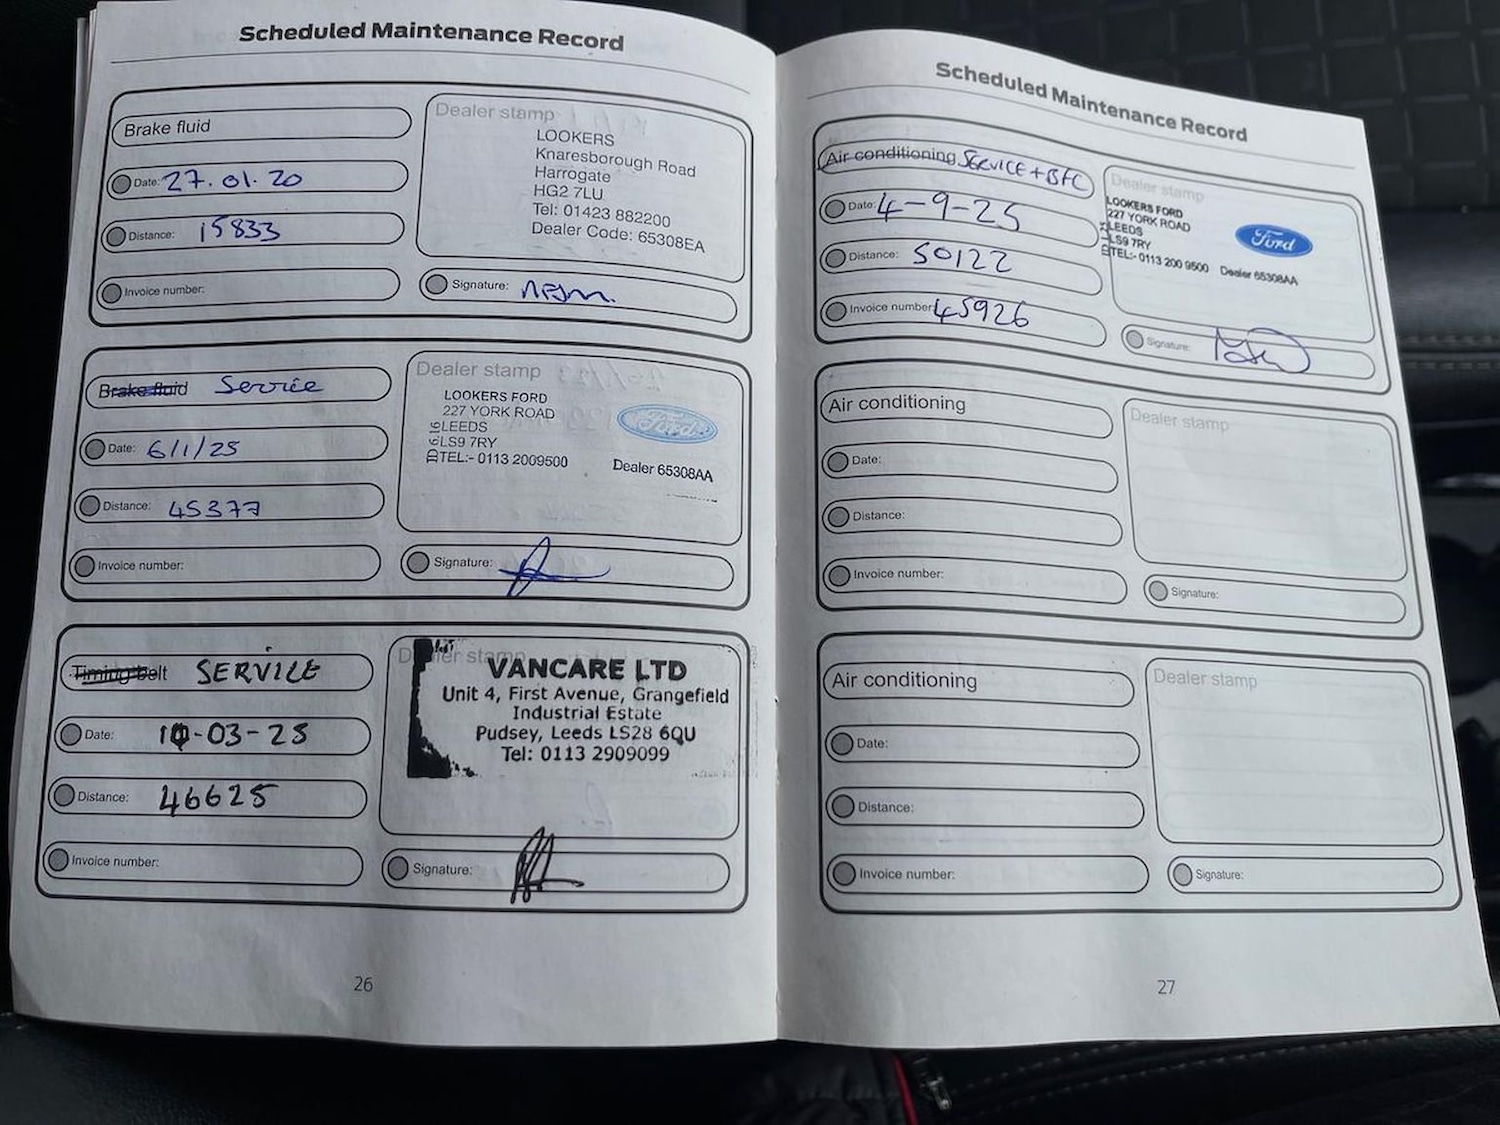 Scheduled Maintenance Record
Brake fluid
Date: 27.01.20
Distance: 15833
Invoice number:
Dealer stamp
LOOKERS
Knaresborough Road
Harrogate
HG2 7LU
Tel: 01423 882200
Dealer Code: 65308EA
Signature:
Brake fluid Service
Date: 6/1/25
Distance: 45377
Invoice number:
Dealer stamp
LOOKERS FORD
227 YORK ROAD
LEEDS
LS9 7RY
TEL:- 0113 2009500
Ford
Dealer 65308AA
Signature:
Timing belt SERVICE
Date: 10-03-25
Distance: 46625
Invoice number:
Dealer stamp
VANCARE LTD
Unit 4, First Avenue, Grangefield
Industrial Estate
Pudsey, Leeds LS28 6QU
Tel: 0113 2909099
Signature:
26
Scheduled Maintenance Record
Air conditioning SERVICE + BFC
Date: 4-9-25
Distance: 50122
Invoice number: 45926
Dealer stamp
LOOKERS FORD
227 YORK ROAD
LEEDS
LS9 7RY
TEL:- 0113 200 9500
Ford
Dealer 65308AA
Signature:
Air conditioning
Date:
Distance:
Invoice number:
Dealer stamp
Signature:
Air conditioning
Date:
Distance:
Invoice number:
Dealer stamp
Signature:
27